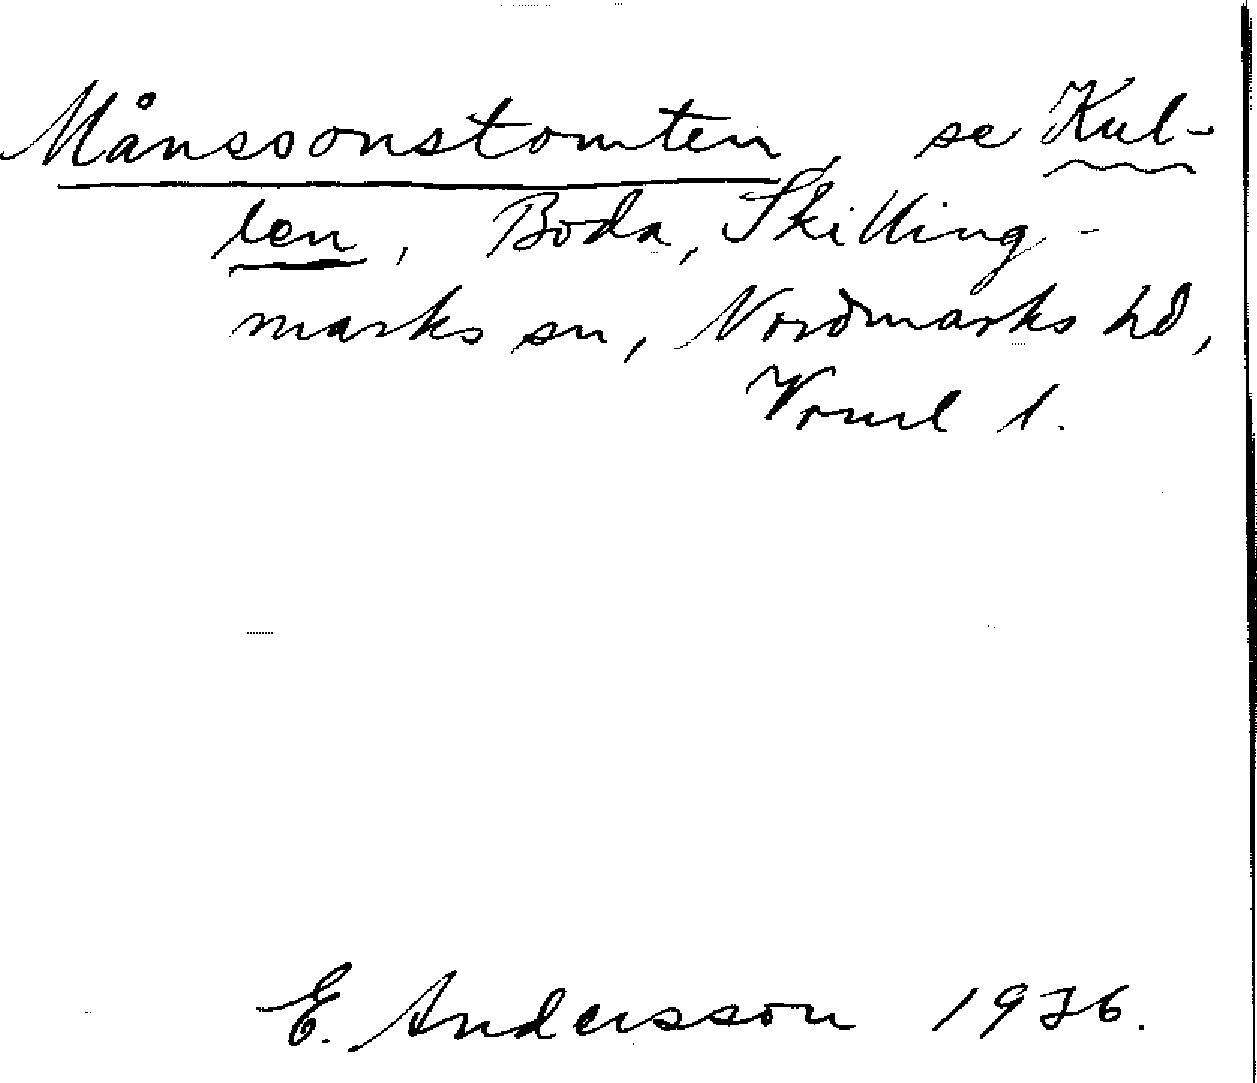 Månssonstomten, se Kul-
len, Boda, Skilling-
marks sn, Nordmarks hd,
Vrml l.
E. Andersson 1936.